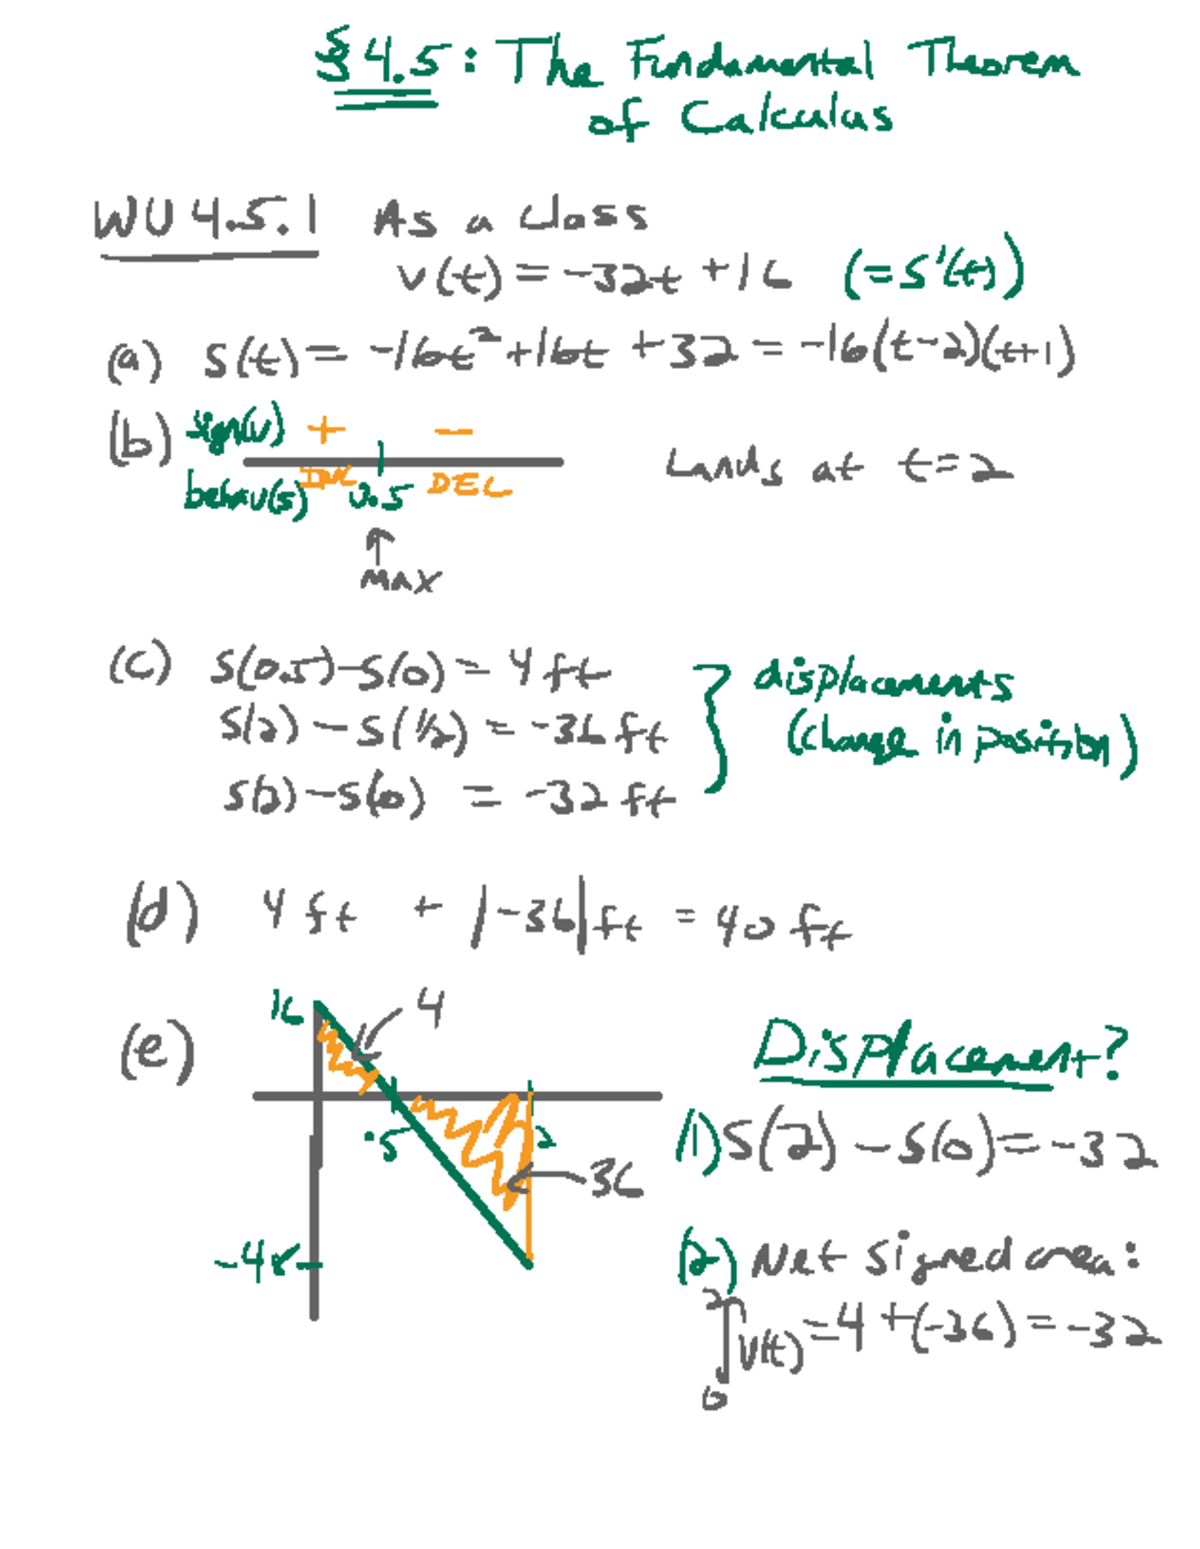 § 4.5: The Fundamental Theorem
of Calculus
WU 4.5.1 As a class
v(t) = -32t +16 (=s'(t))
(a) s(t) = -16t²+16t +32 = -16(t-2)(t+1)
(b) sign(v) + -
behav(s) INC 0.5 DEC
Lands at t=2
↑
MAX
(c) s(0.5)-s(0) = 4 ft
s(2) - s(1/2) = -36 ft
s(2) - s(0) = -32 ft
} displacements
(change in position)
(d) 4 ft + |-36| ft = 40 ft
(e) 16 4
.5 2
36
-48
Displacement?
(1) s(2) - s(0) = -32
(2) Net signed area:
∫₀² v(t) = 4 + (-36) = -32